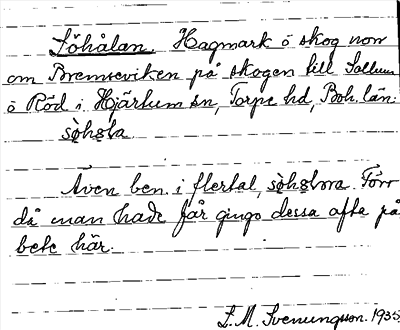 Söhålan. Hagmark o skog norr
om Bremseviken på skogen till Sollum
o Röd i Hjärtum sn, Torpe hd, Boh. län:
sø̀hɷla
Även ben. i flertal, sø̀hɷlɷra. Förr
då man hade får gingo dessa ofta på
bete här.
L. M. Svenungsson. 1935.